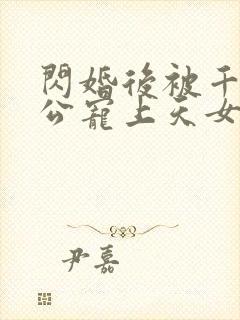 閃婚後被千
公寵上天女
尹嘉